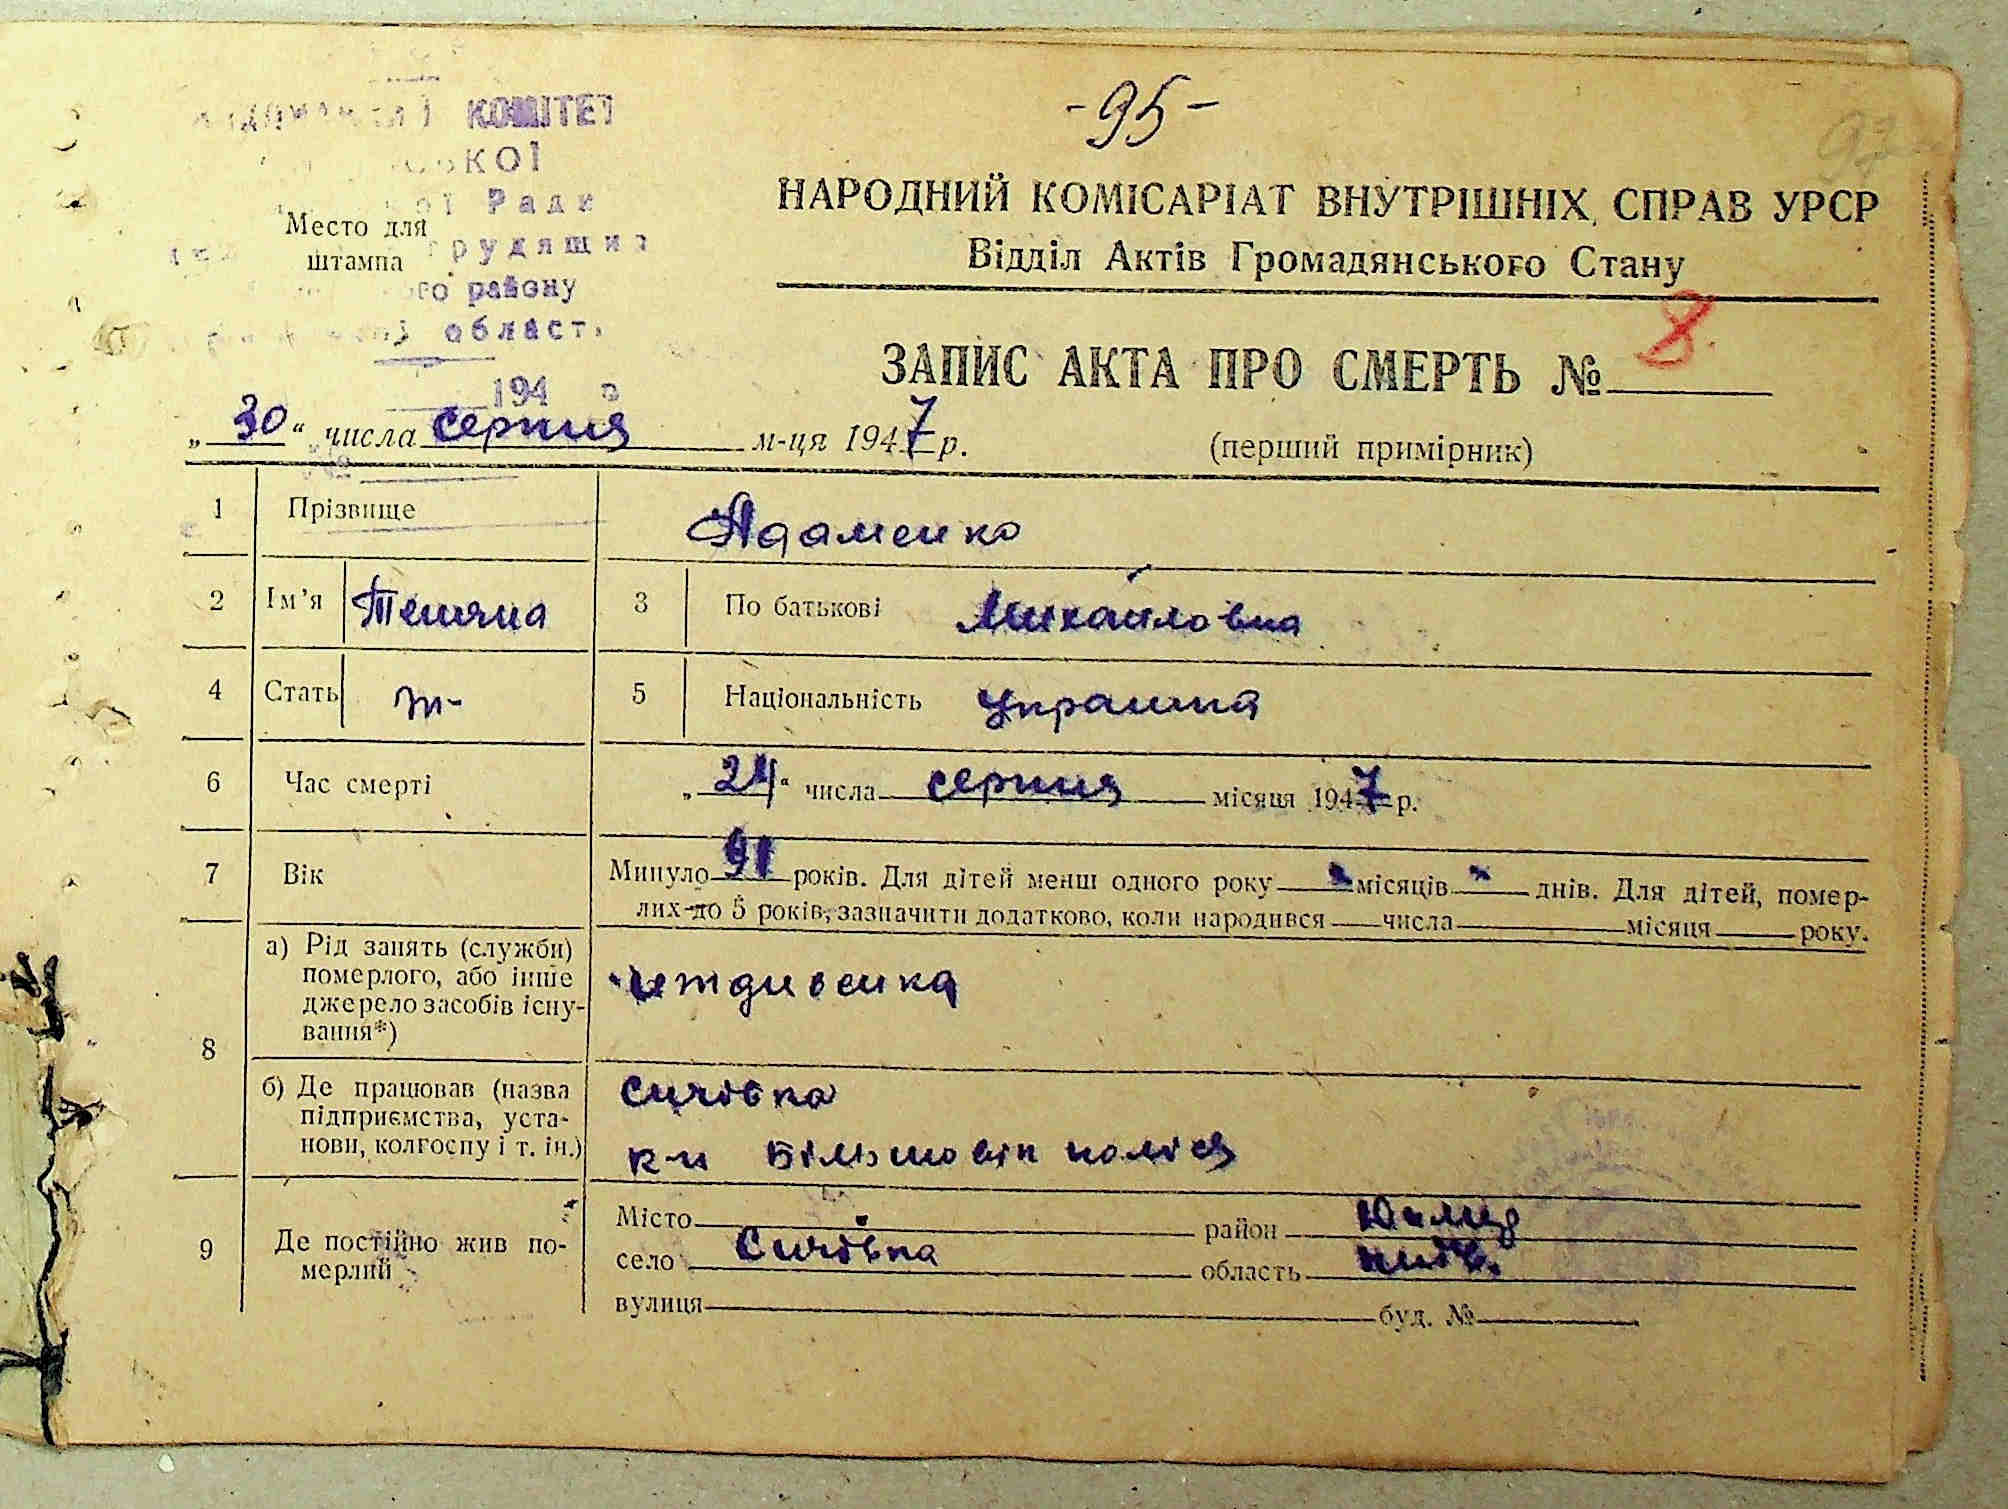 -95-
КОМІТЕТ
Ради
Место для
штампа
району
област
194
НАРОДНИЙ КОМІСАРІАТ ВНУТРІШНІХ СПРАВ УРСР
Відділ Актів Громадянського Стану
ЗАПИС АКТА ПРО СМЕРТЬ № 8.
„30“ числа серпня м-ця 1947 р.
(перший примірник)
1 Прізвище Адаменко
2 Ім'я Тетяна 3 По батькові Михайловна
4 Стать ж- 5 Національність українка
6 Час смерті „24“ числа серпня місяця 1947 р.
7 Вік Минуло 91 років. Для дітей менш одного року - місяців - днів. Для дітей, помер-
лих до 5 років, зазначити додатково, коли народився числа місяця року.
8 а) Рід занять (служби)
померлого, або інше
джерело засобів існу-
вання*)
иждивенка
б) Де працював (назва
підприємства, уста-
нови, колгоспу і т. ін.)
Сичівка
к-п Більшовік полісся
9 Де постійно жив по-
мерлий
Місто район
село Сичівка область Київ.
вулиця буд. №